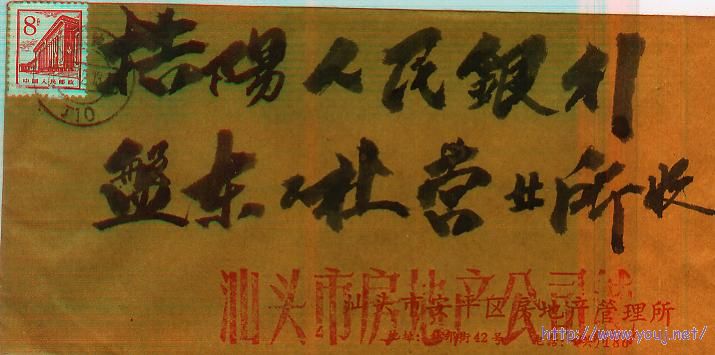 8分
中国人民邮政
揭陽人民銀行
盤东公社营业所收
汕头市房地产公司
汕头市安平区房地产管理所
地址: 42号
http://www.youj.net/